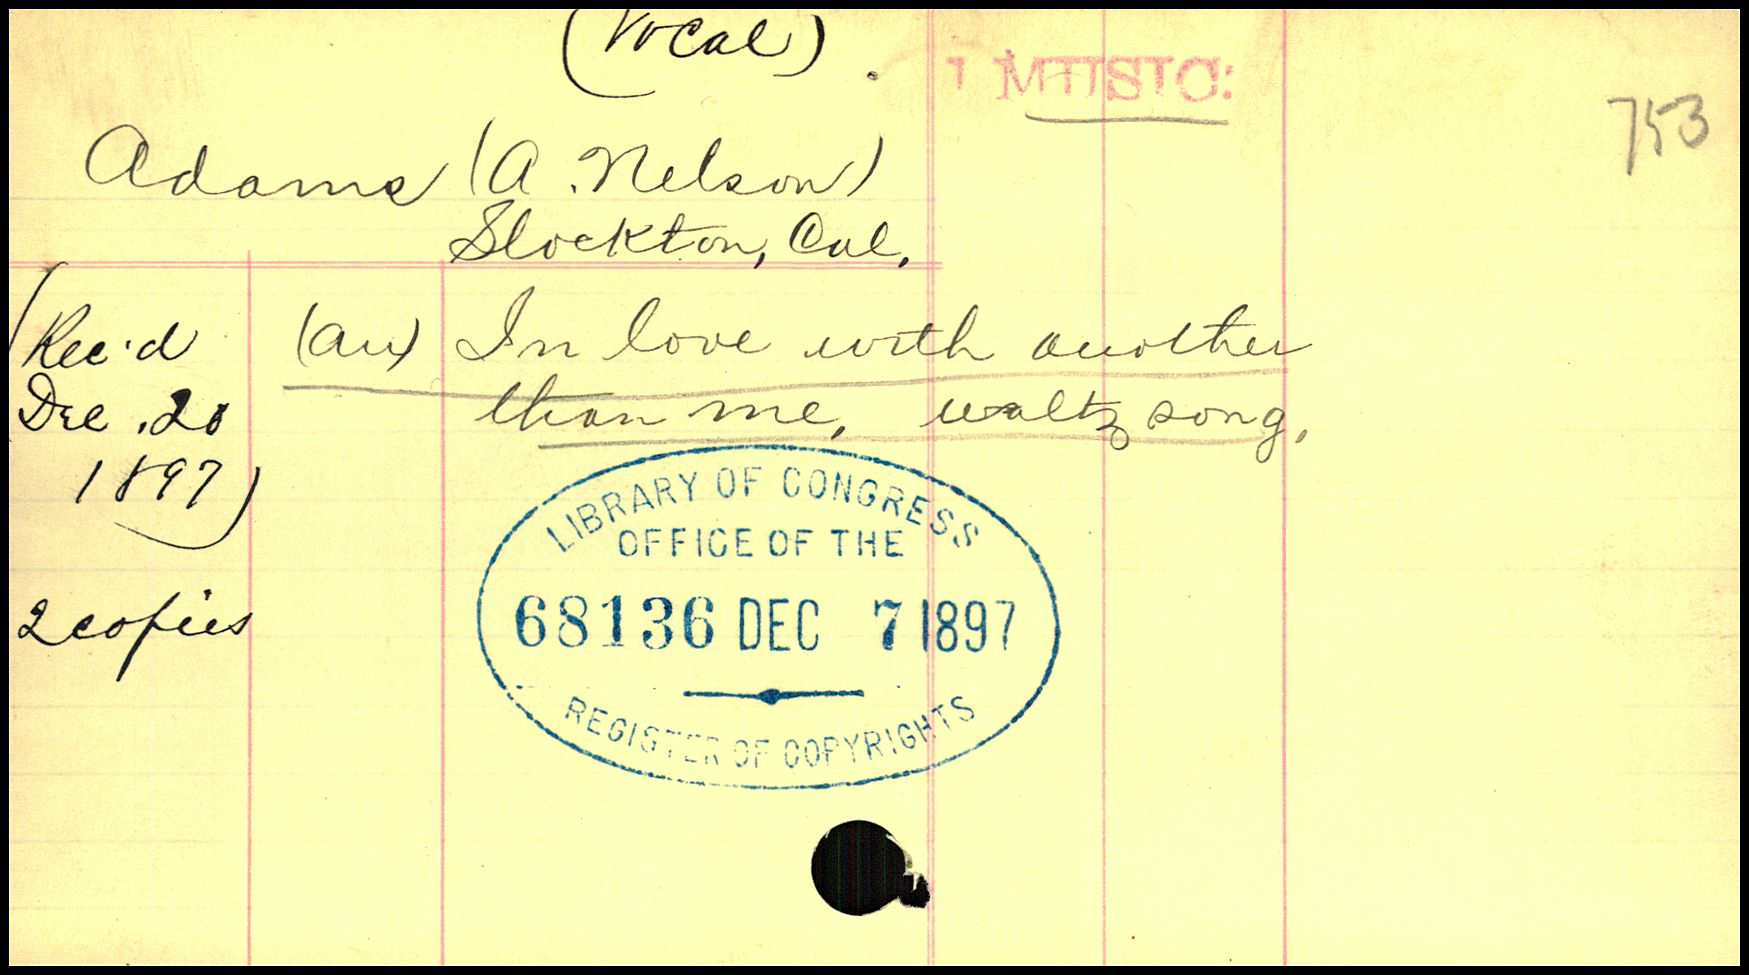 (Vocal).
MUSIC:
753
Adams (A. Nelson)
Stockton, Cal.
(Rec'd
Dec. 20
1897)
2 copies
(au) In love with another
than me, waltz song.
LIBRARY OF CONGRESS
OFFICE OF THE
68136 DEC 7 1897
REGISTER OF COPYRIGHTS